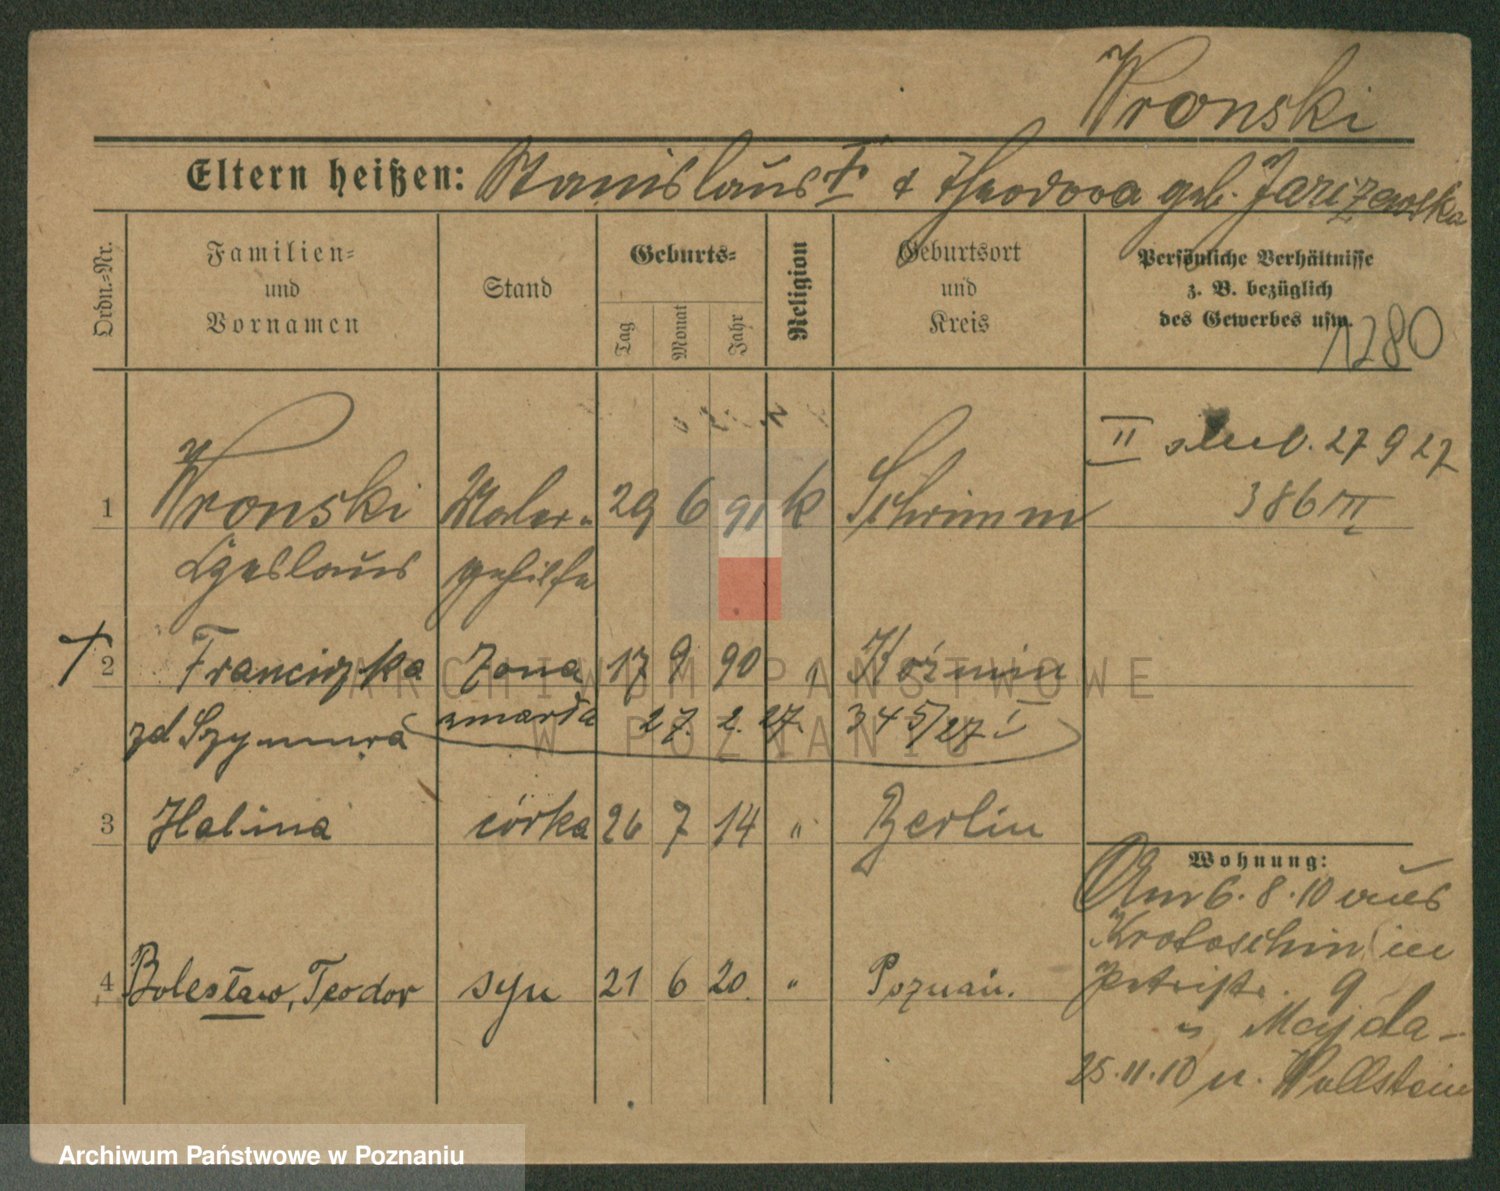 Wronski
Eltern heißen: Stanislaus † & Theodora geb. Jarizewska
Ordn.-Nr.
Familien-
und
Vornamen
Stand
Geburts-
Tag
Monat
Jahr
Religion
Geburtsort
und
Kreis
Persönliche Verhältnisse
z. B. bezüglich
des Gewerbes usw.
1280
II slub. 27 9 27
386 III
1 Wronski Maler- 29 6 91 k Schrimm
Czeslaus gehilfe
† 2 Franciszka żona 17 9 90 " Koźmin
zd Szymura zmarła 27. 2. 27. 345/27 I
3 Halina córka 26 7 14 " Berlin
4 Bolesław, Teodor syn 21 6 20. " Poznań.
Wohnung:
Am 6.8.10 aus
Krotoschin in
Petristr. 9
Majda-
25.11.10 n. Wollstein
ARCHIWUM PAŃSTWOWE
W POZNANIU
Archiwum Państwowe w Poznaniu